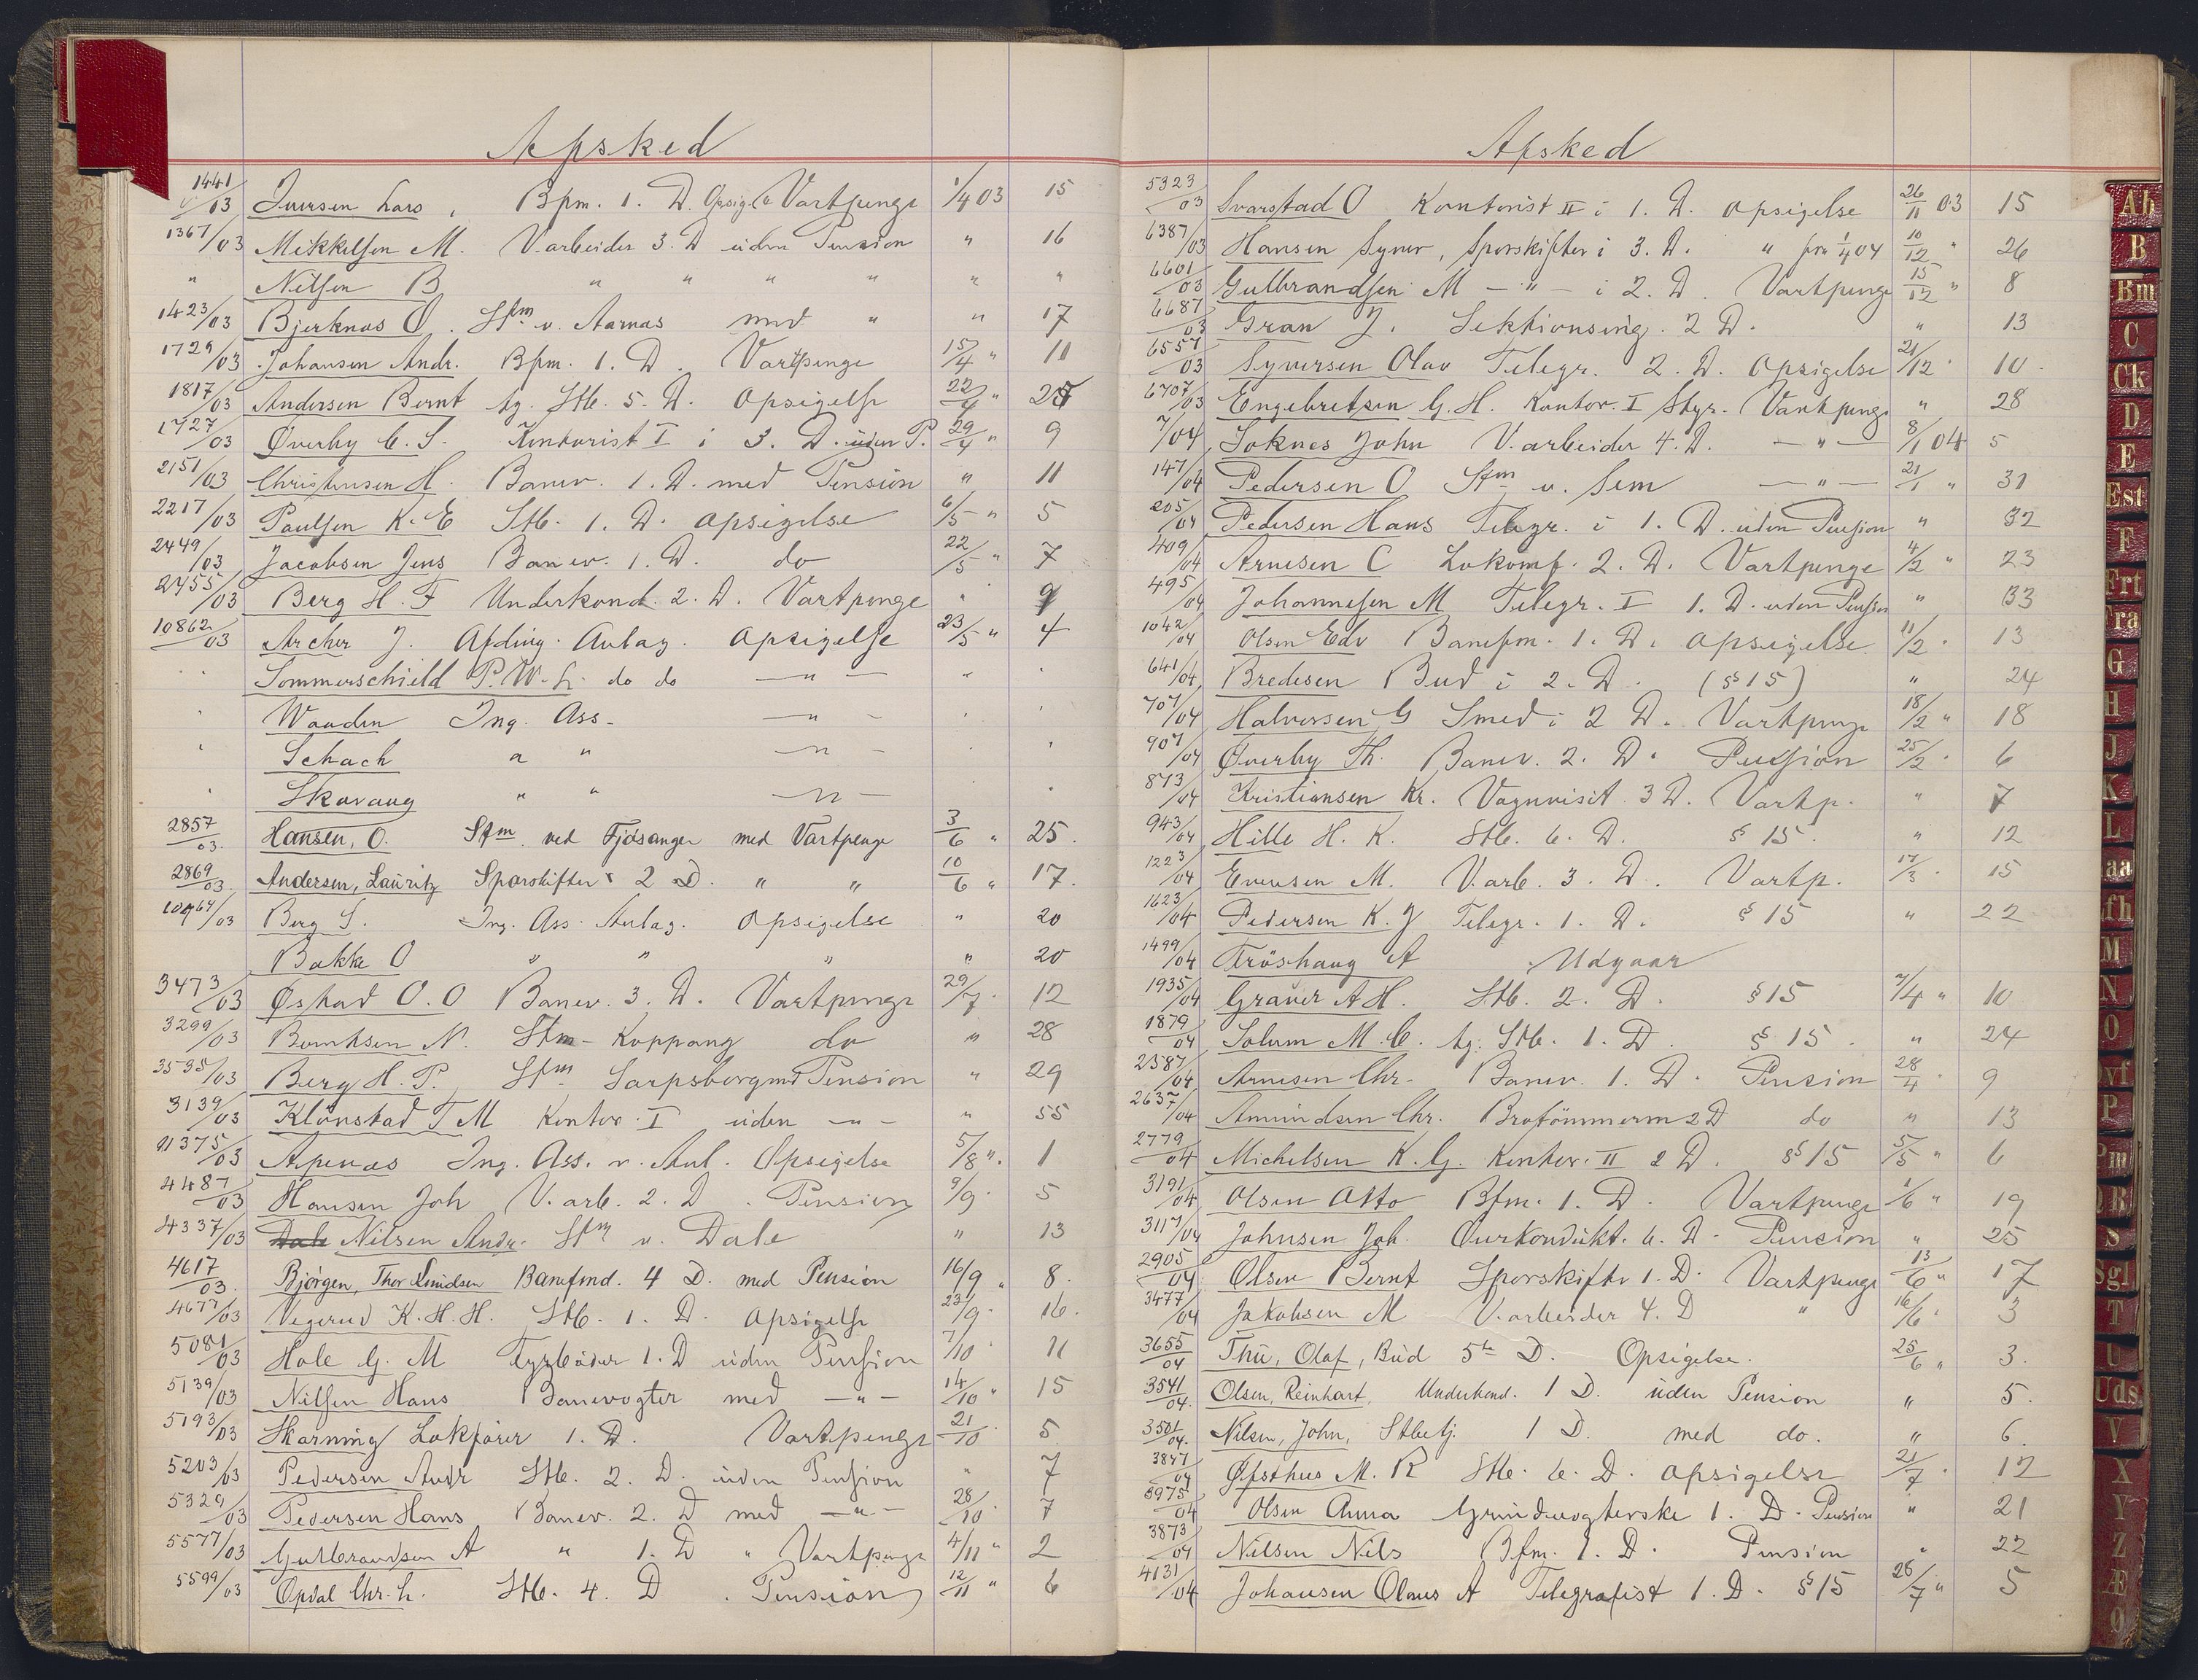 Afsked
1441/03 Iversen Lars, Bfm. 1. D. Opsig. Vartpenge 1/4 03 15
1367/03 Mikkelsen M. V.arbeider 3. D uden Pension " 16
" Nilsen B " " " " " "
1423/03 Bjerknæs O. Stm v. Aarnæs med " " 17
1729/03 Johansen Andr. Bfm. 1. D. Vartpenge 15/4 " 11
1817/03 Andersen Bernt tg. Stb. 5. D. Opsigelse 22/4 "
1727/03 Øverby C. S. Kontorist I i 3. D. uden P. 29/4 " 9
2151/03 Christensen H. Banev. 1. D. med Pension " 11
2217/03 Paulsen K. E Stb. 1. D. Opsigelse 6/5 " 5
2449/03 Jacobsen Jens Banev. 1. D. do 22/5 " 7
2455/03 Berg H. F Underkond. 2. D. Vartpenge " 9
10862/03 Archer J. Afding. Anlæg. Opsigelse 23/5 " 4
" Sommerschield P. W. L. do do — " — " "
" Waaden Ing. Ass. — " — " "
" Schach " " — " — " "
" Skavang " " — " — "
2857/03. Hansen, O. Stm. ved Fjøsanger med Vartpenge 3/6 " 25.
2869/03. Andersen, Lauritz Sporskifter 2 D. " " 10/6 " 17.
10964/03 Berg S. Ing. Ass. Anlæg. Opsigelse " 20
Bakke O " " " " 20
3473/03 Østad O. O Banev. 3. D. Vartpenge 29/7 " 12
3299/03 Berntsen N. Stm - Koppang do " 28
3535/03 Berg H. P. Stm Sarpsborg md Pension " 29
3139/03 Klønstad T M Kontor. I uden — " — " 55
11375/03 Apenæs Ing. Ass. v. Anl. Opsigelse 5/8 " 1
4487/03 Hansen Joh V. arb. 2. D. Pension 9/9 " 5
4337/03 Dale Nilsen Andr. Stm v. Dale " 13
4617/03. Bjørgen, Thor Amundsen Banefmd. 4 D. med Pension 16/9 " 8.
4677/03 Vegerud K. H. H. Stb. 1. D. Opsigelse 23/9 " 16.
5081/03 Hole G. M Fyrbøder 1. D uden Pension 7/10 " 11
5139/03 Nilsen Hans Banevogter med — " — 14/10 " 15
5193/03 Skarning Lokfører 1. D. Vartpenge 21/10 " 5
5203/03 Pedersen Andr Stb. 2. D. uden Pension " 7
5329/03 Pedersen Hans Banev. 2. D med — " — 28/10 " 7
5577/03 Gulbrandsen A " 1. D " Vartpenge 4/11 " 2
5599/03 Opdal Chr. L. Stb. 4. D. Pension 12/11 " 6
Afsked
5323/03 Svarstad O Kontorist II i 1. D. Opsigelse 26/11 03 15
6387/03 Hansen Syver, Sporskifter i 3. D. " fra 1/4 04 10/12 " 26
6601/03 Gulbrandsen M — " — i 2. D. Vartpenge 15/12 " 8
6687/03 Gran J. Sektionsing. 2 D. " 13
6557/03 Syversen Olav Telegr. 2. D. Opsigelse 21/12 " 10
6707/03 Engebretsen G. H. Kontor. I Styr. Vartpenge " 28
7/04 Soknes John V. arbeider 4. D. — " — 8/1 04 5
147/04 Pedersen O Stm v. Sem — " — 21/1 " 31
205/04 Pedersen Hans Telegr. i 1. D. uden Pension " 32
409/04 Arnesen C Lokomf. 2. D. Vartpenge 4/2 " 23
495/04 Johannesen M Telegr. I 1. D. uden Pension " 33
1042/04 Olsen Edv Banefm. 1. D. Opsigelse 11/2 " 13
641/04 Bredesen Bud i 2. D. (§ 15) " 24
707/04 Halvorsen G Smed i 2 D. Vartpenge 18/2 " 18
907/04 Øverby Th. Banev. 2. D. Pension 25/2 " 6
873/04 Kristiansen Kr. Vognvisit. 3 D. Vartp. " 7
943/04 Hille H. K. Stb. 6. D. § 15. " 12
1223/04 Evensen M. V.arb. 3. D. Vartp. 17/3 " 15
1623/04 Pedersen K. J Telegr. 1. D. § 15 " 22
1499/04 Frøshaug A Udgaar
1935/04 Graver A H. Stb. 2. D. § 15 7/4 " 10
1879/04 Solum M. C. tg. Stb. 1. D. § 15. " 24
2587/04 Arnesen Chr. Banev. 1. D. Pension 28/4 " 9
2637/04 Amundsen Chr. Brotømmerm 2 D do " 13
2779/04 Michelsen K. G. Kontor. II 2 D. § 15 5/5 " 6
3191/04 Olsen Otto Bfm. 1. D. Vartpenge 1/6 " 19
3117/04 Johnsen Joh. Overkondukt. 6. D. Pension " 25
2905/04 Olsen Bernt Sporskifter 1. D. Vartpenge 13/6 " 17
3477/04 Jakobsen M V.arbeider 4. D " 16/6 " 3
3655/04 Thu, Olaf, Bud 5te D. Opsigelse. 25/6 " 3.
3541/04. Olsen, Reinhart, Underkond. 1 D. uden Pension " 5.
3501/04. Nilsen, John, Stbetj. 1 D. med do. " 6.
3847/04 Øfsthus M. R Stb. 6. D. Opsigelse 21/7 " 12
3975/04 Olsen Anna Grindvogterske 1. D. Pension " 21
3873/04 Nilsen Nils Bfm. 1. D. Pension " 22
4131/04 Johansen Olaus A Telegrafist 1. D. § 15 28/7 " 5
Ab
B
Bm
C
Ck
D
E
Est
F
Frt
G
H
J
K
L
M
N
O
P
S
Sgl
T
U
Uds
V
X
Y
Z
Æ
Ø